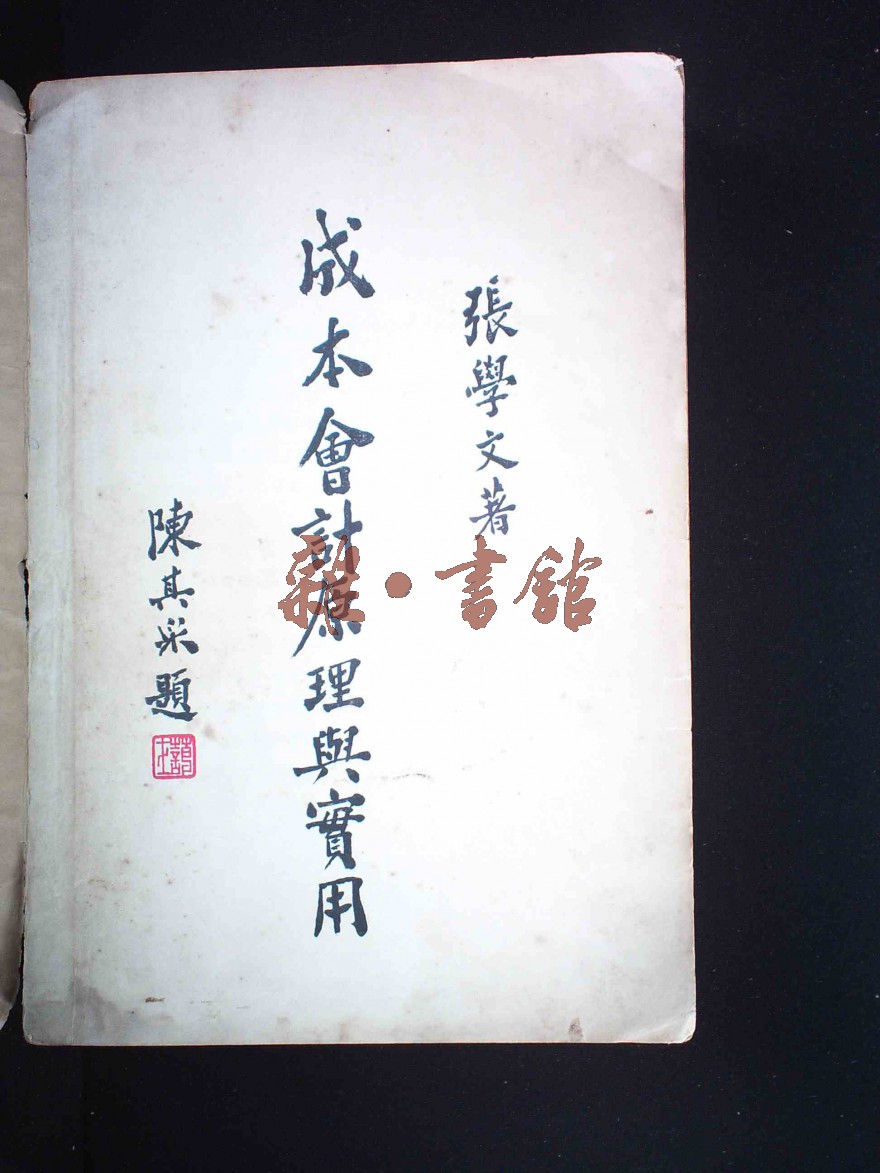 張學文著
成本會計原理與實用
陳其采題
雜·書館